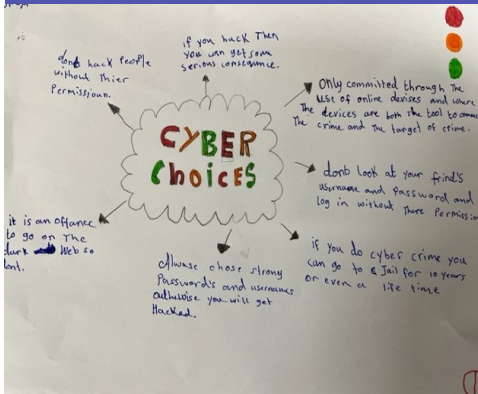 CYBER
ChoicES
dont hack People
without Thier
Permissioun.
if you huck Then
you can get some
serious consequnce.
Only committed through The
Use of online devises and where
The devices are both the tool to
The crime and The target of crime.
donb look at your frind's
username and Password and
log in without There Permission
if you do cyber crime you
can go to Jail for 10 years
or even a life time
Alwase chose strong
Password's and usernames
outherwise you will get
Hacked.
it is an offance
to go on The
durk Web so
dont.